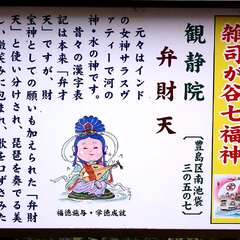 雑司が谷七福神
観静院
弁財天
〔豊島区南池袋
三の五の七〕
元々はインド
の女神サラスヴ
ァティーで河の
神・水の神です。
昔々の漢字表
記は本来「弁才
天」ですが、財
宝神としての願いも加えられた「弁財
天」と使い分けされ、琵琶を奏でる美
しい微笑みに包まれ、歌を口ずさみた
福徳施与・学徳成就